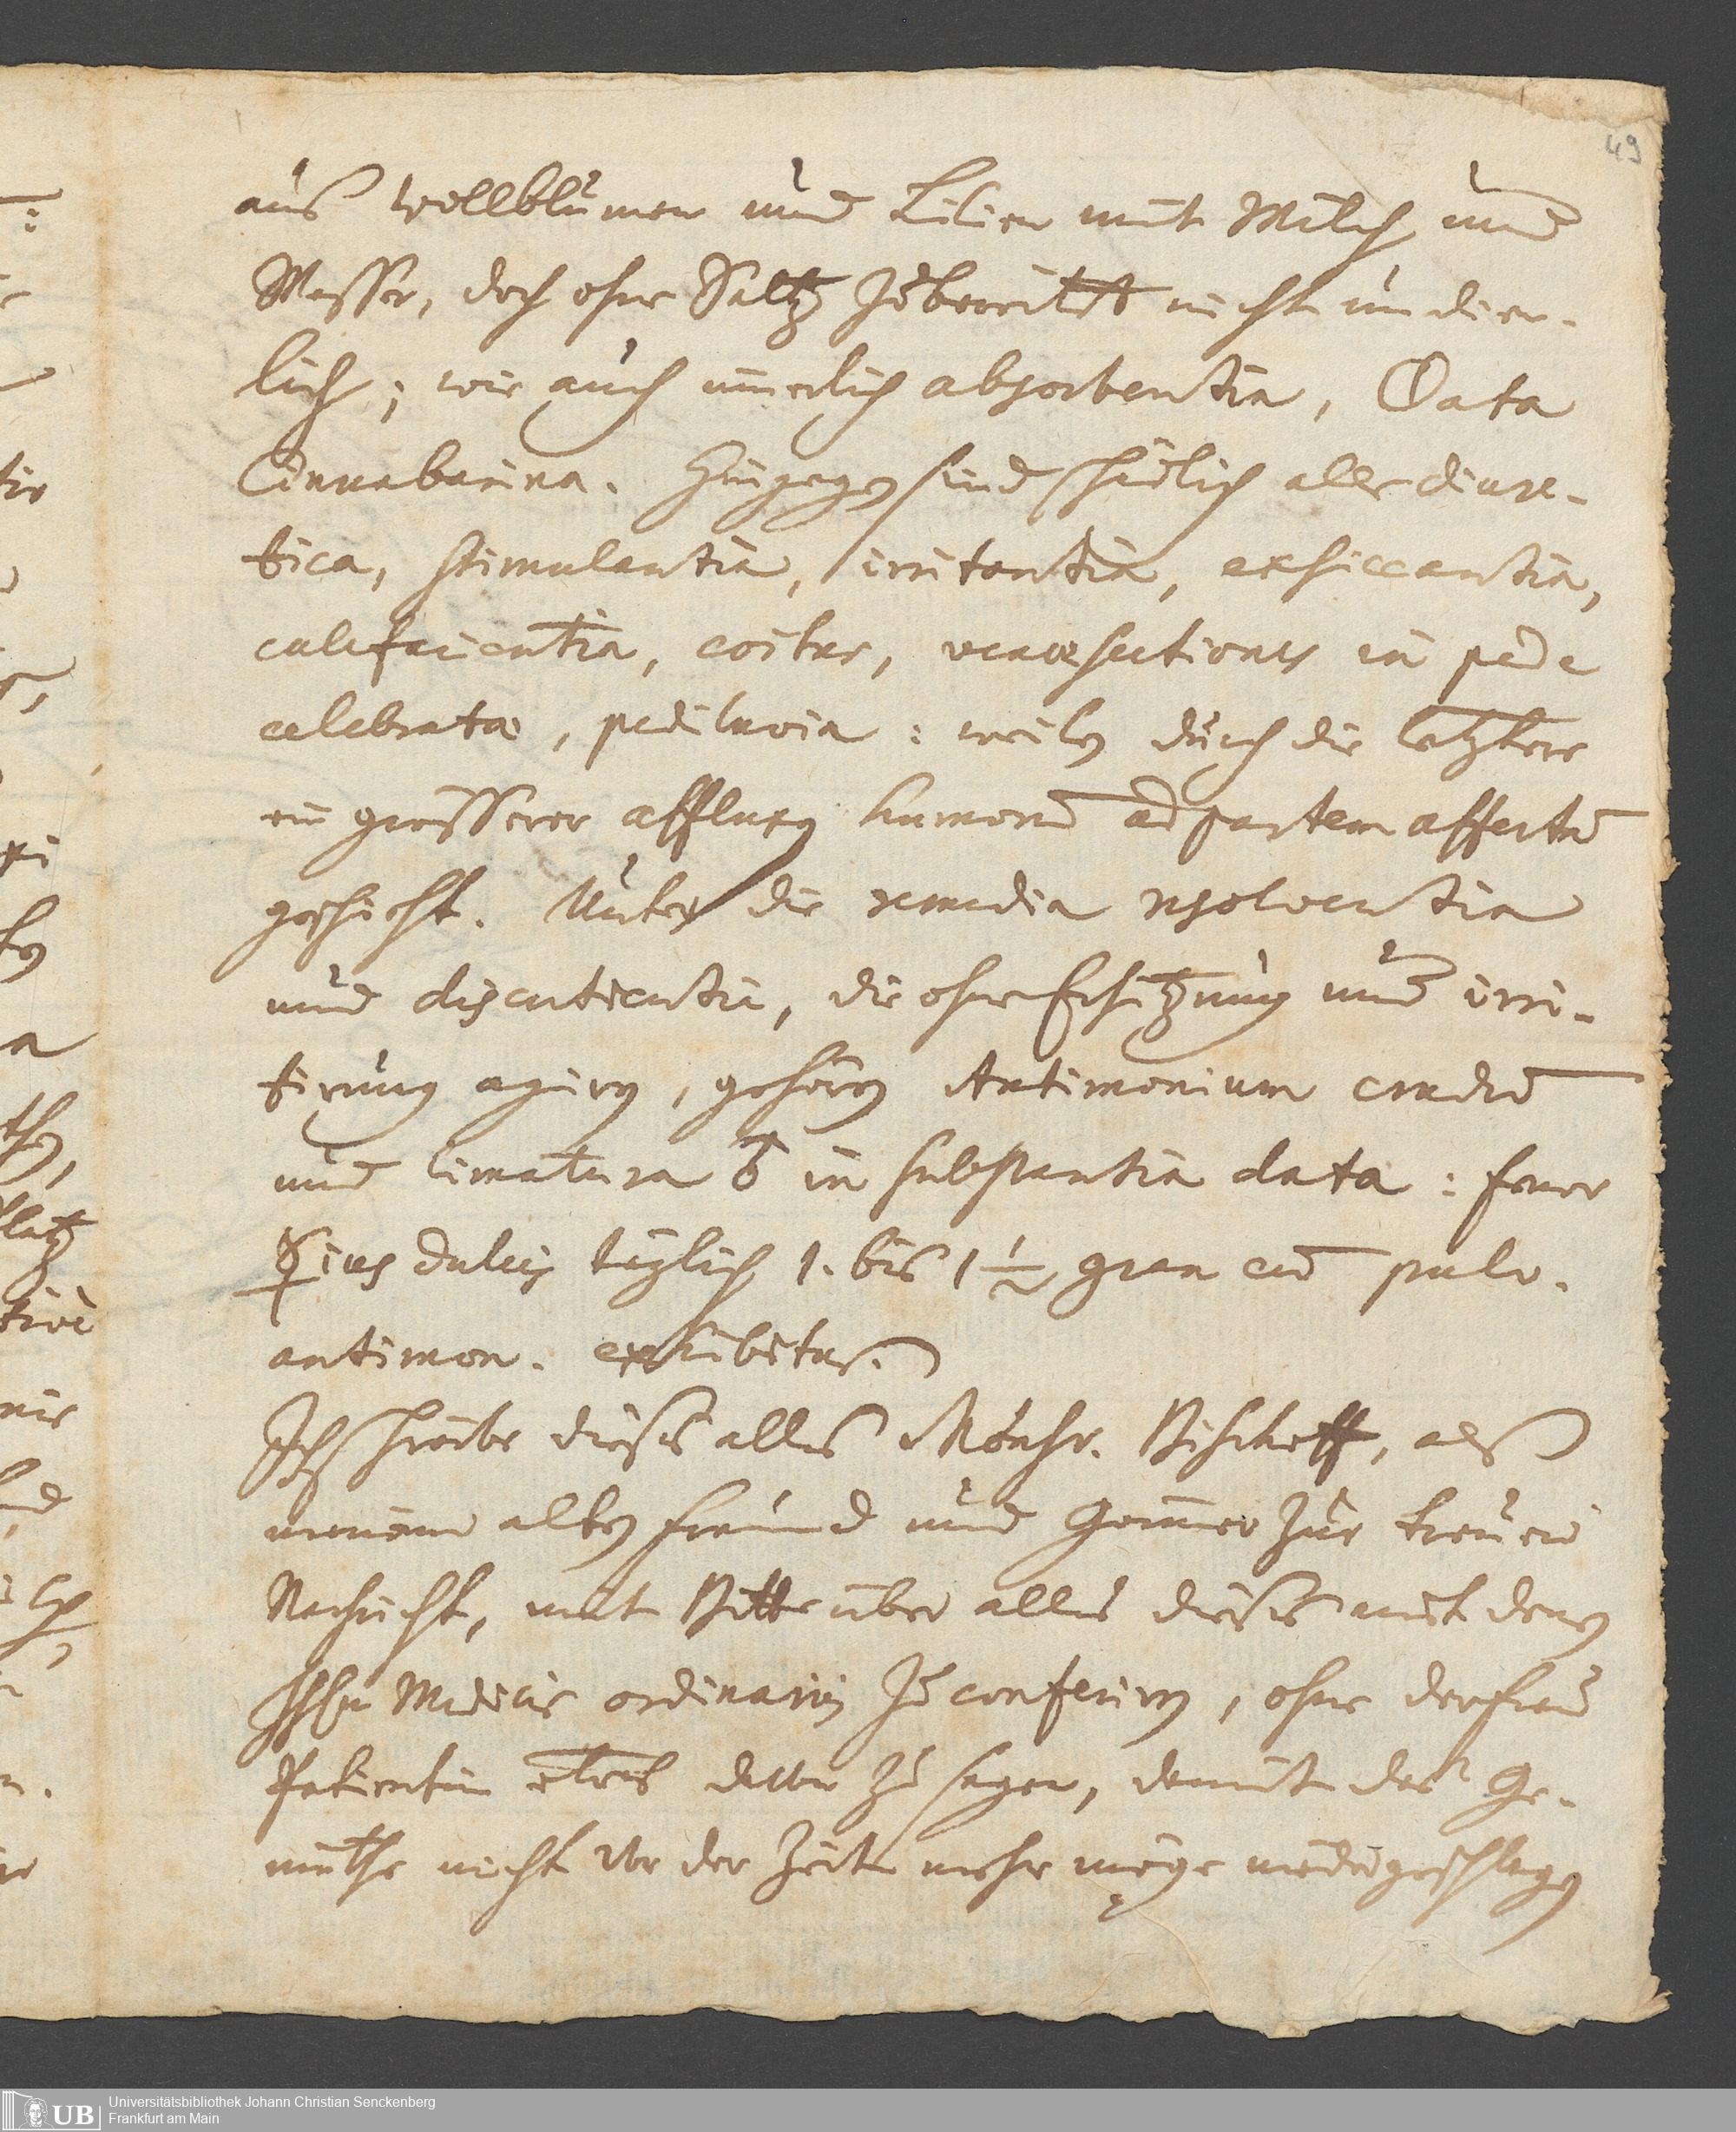 49
aus wollblumen und Lilien mit Milch und
Wasser, doch ohne Saltz zubereitet nicht undien-
lich; wie auch innerlich absorbentia, Oata
Cinnabarina. Hingegen sind schädlich alle diure-
tica, stimulantia, irritantia, exsiccantia,
calefacientia, coitus, venaesectiones in pede
celebratae, pediluvia: weilen durch die letztere
ein grösserer affluxus humorū ad partem affectā
geschicht. Unter die remedia resolventia
und discutientia, die ohne Erhitzung und irri-
tirung agiren, gehören Antimonium crudū
und limatura ♂ in substantia data: ferner
☿ius dulcis täglich 1. bis 1 1/2 gran cū pulv.
antimon. exhibitus.
Ich schreibe dieses alles Monsr. Bischoff, als
meinem alten freund und Gönner zur treuen
Nachricht, mit Bitte über alles dieses mit denen
HHn Medicis ordinariis zu conferiren, ohne der frau
Patientin etwas davon zu sagen, damit das Ge-
müthe nicht vor der Zeit mehr möge niedergeschlagen
Universitätsbibliothek Johann Christian Senckenberg
Frankfurt am Main
UB